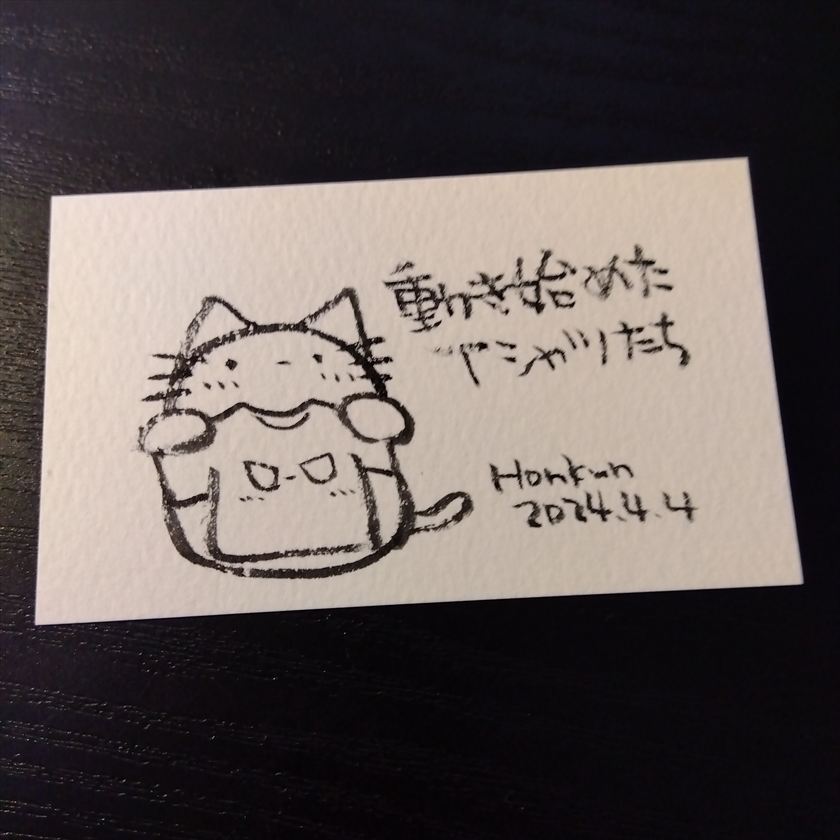 動き始めた
Tシャツたち
Honkun
2024.4.4